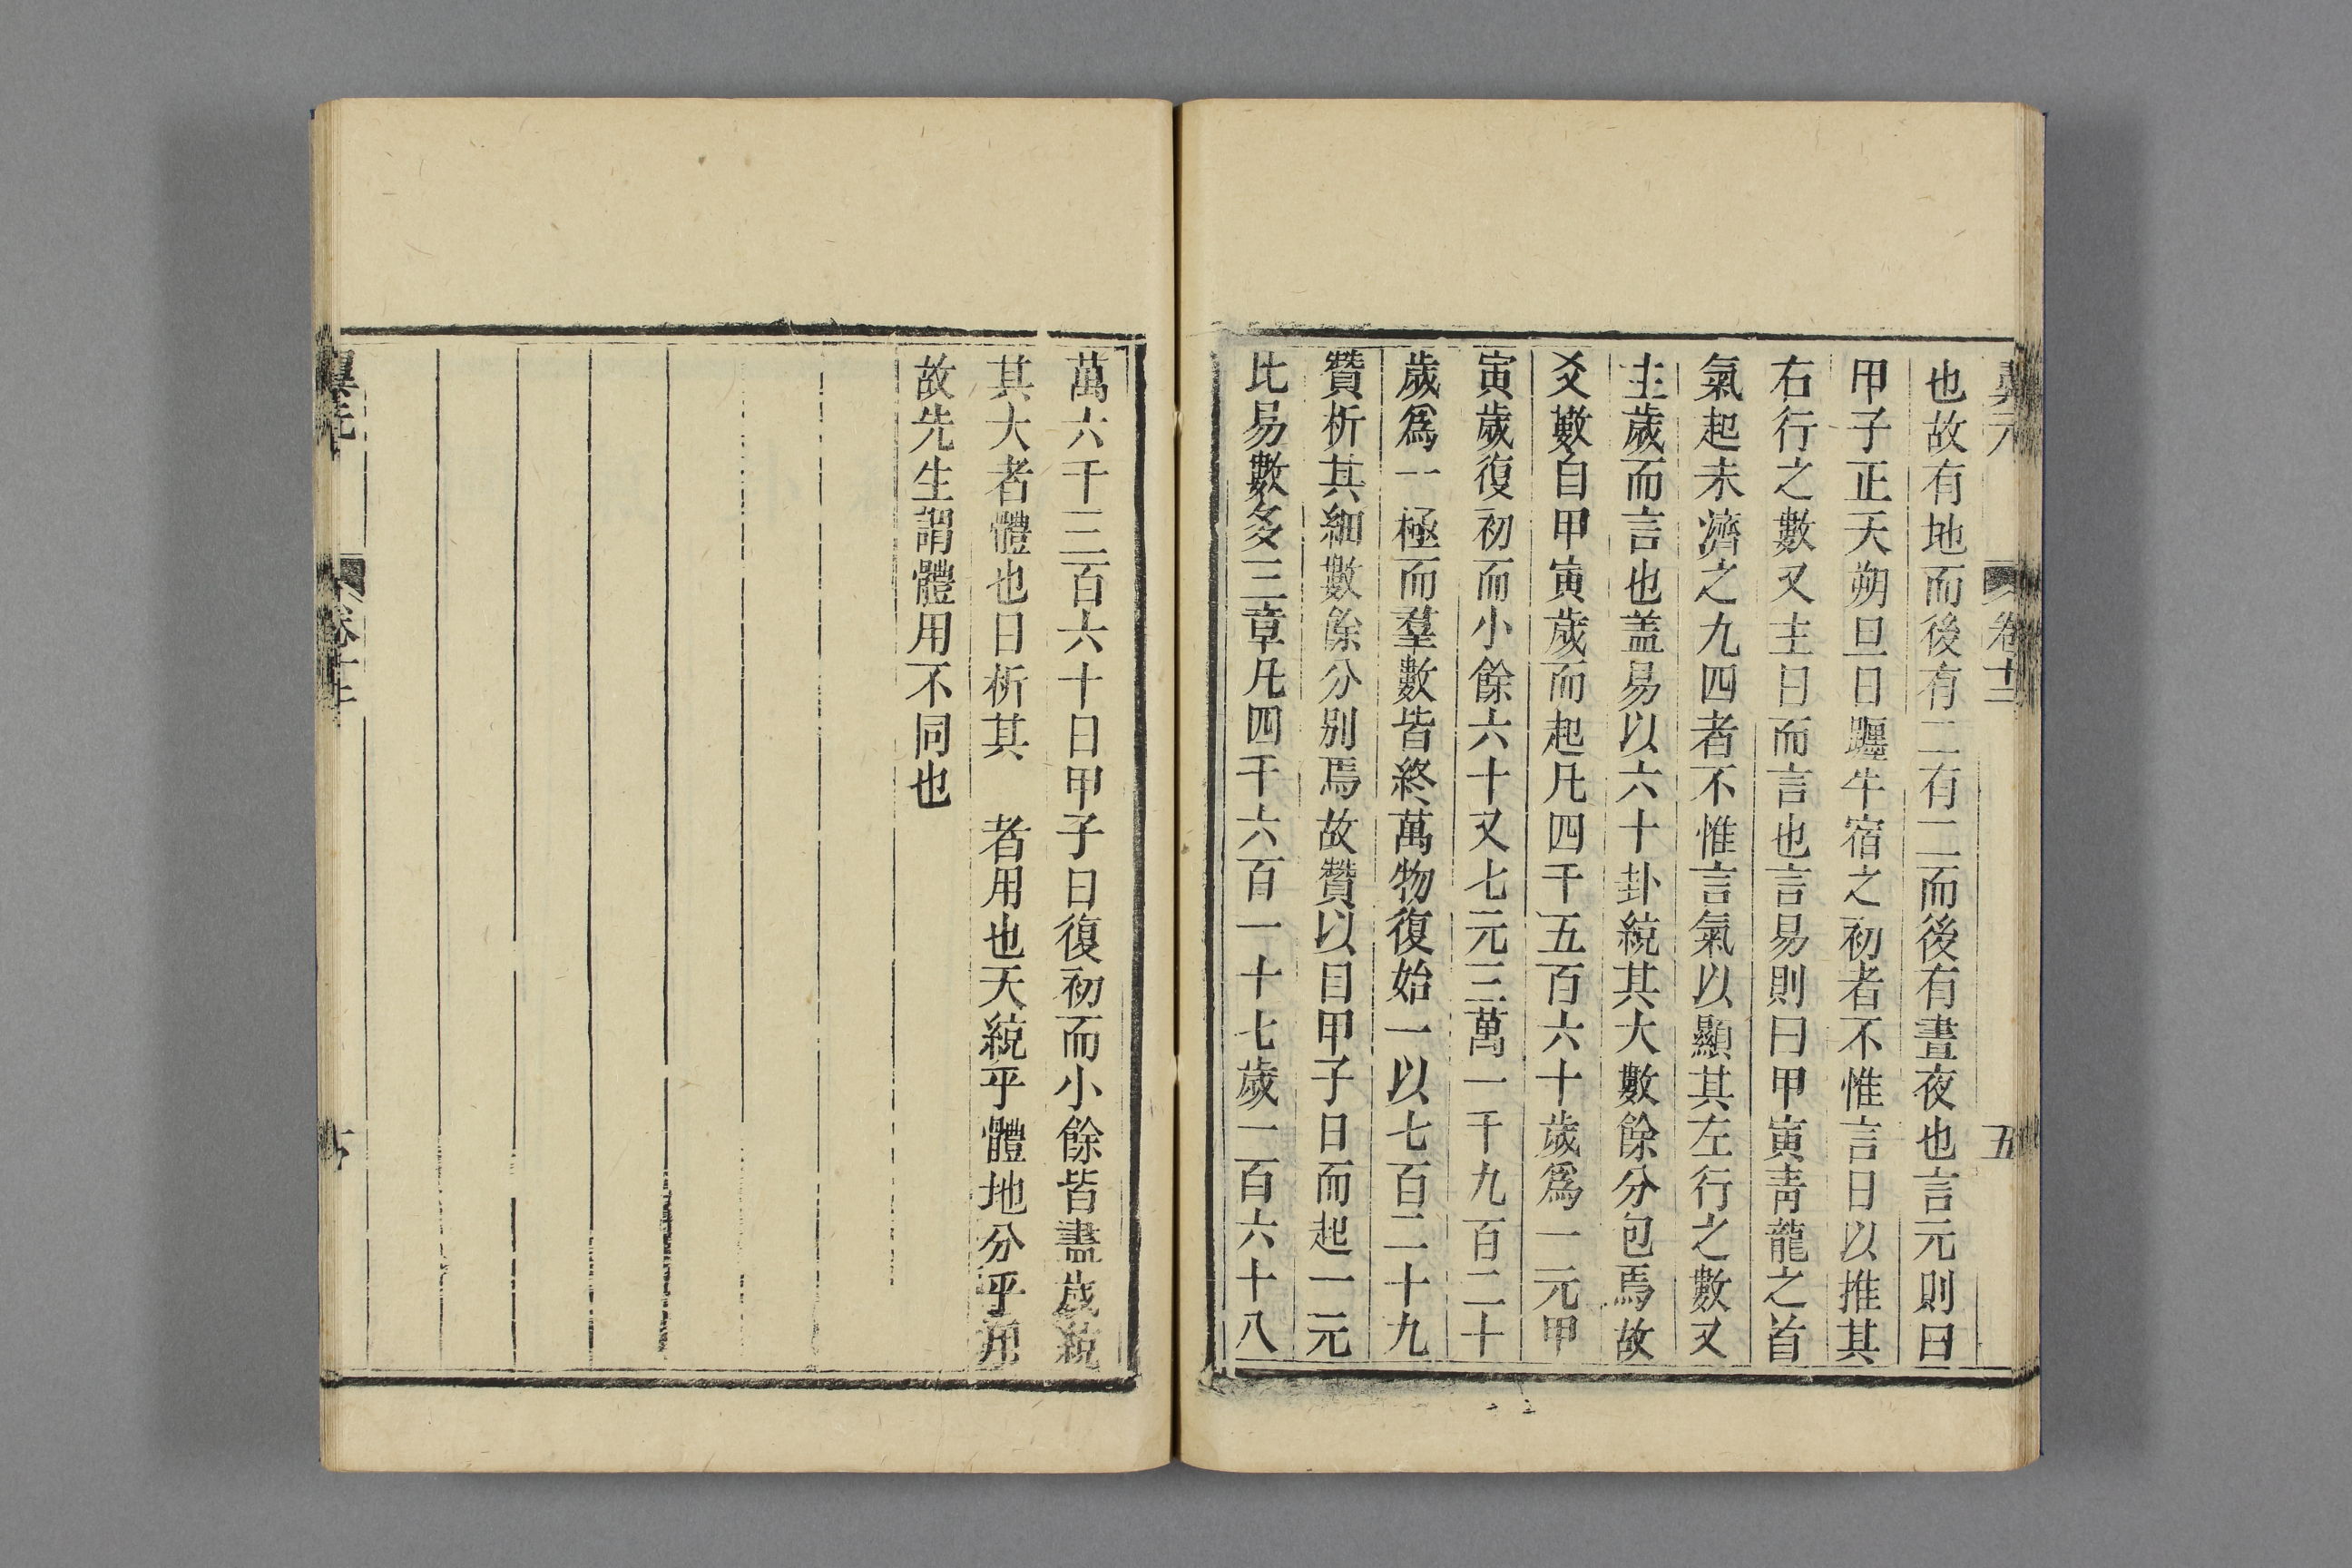 卷十二
五
也故有地而後有二有二而後有晝夜也言元則曰
甲子正天朔旦日躔牛宿之初者不惟言日以推其
右行之數又主日而言也言易則曰甲寅青龍之首
氣起未濟之九四者不惟言氣以顯其左行之數又
主歲而言也盖易以六十卦統其大數餘分包焉故
爻數自甲寅歲而起凡四千五百六十歲爲一元甲
寅歲復初而小餘六十又七元三萬一千九百二十
歲爲一極而羣數皆終萬物復始一以七百二十九
贊析其細數餘分别焉故贊以目甲子日而起一元
比易數多三章凡四千六百一十七歲一百六十八
萬六千三百六十日甲子日復初而小餘皆盡歲統
其大者體也日析其 者用也天統乎體地分乎用
故先生謂體用不同也
翼元